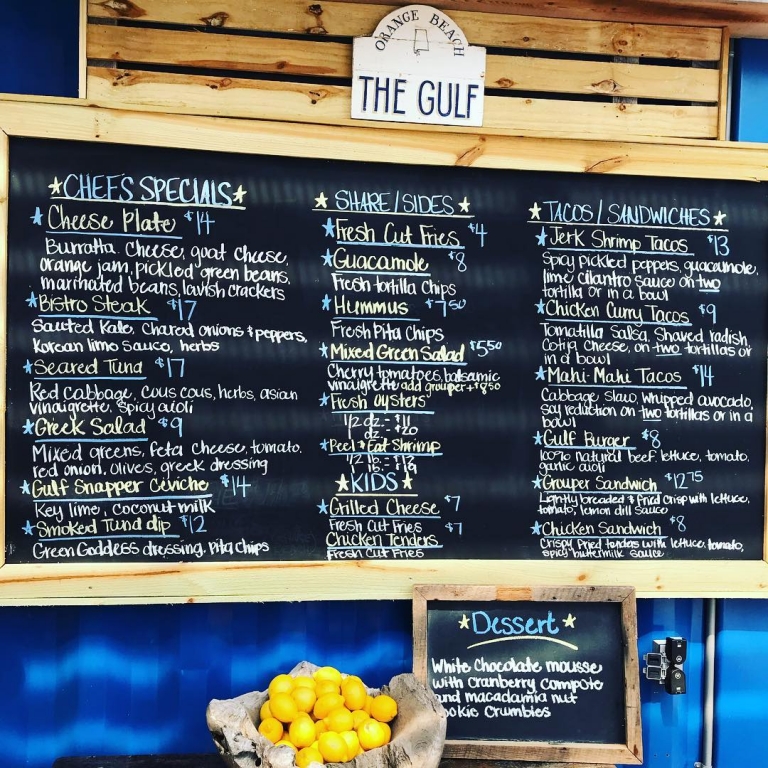 ORANGE BEACH
THE GULF
CHEF'S SPECIALS
Cheese Plate $14
Burratta cheese, goat cheese,
orange jam, pickled green beans,
marinated beans, lavish crackers
Bistro Steak $17
Sauted Kale, chared onions & peppers,
Korean lime sauce, herbs
Seared Tuna $17
Red cabbage, cous cous, herbs, asian
vinaigrette, spicy aioli
Greek Salad $9
Mixed greens, feta cheese, tomato,
red onion, olives, greek dressing
Gulf Snapper Ceviche $14
Key lime, coconut milk
Smoked Tuna dip $12
Green Goddess dressing, pita chips
SHARE/SIDES
Fresh Cut Fries $4
Guacamole $8
Fresh tortilla chips
Hummus $7.50
Fresh Pita Chips
Mixed Green Salad $5.50
Cherry tomatoes, balsamic
vinaigrette add grouper +$8.50
Fresh Oysters
1/2 dz = $11
dz = $20
Peel & Eat Shrimp
1/2 lb. =
lb. =
KIDS
Grilled Cheese $7
Fresh Cut Fries
Chicken Tenders $7
Fresh Cut Fries
TACOS/SANDWICHES
Jerk Shrimp Tacos $13
Spicy pickled peppers, guacamole,
lime cilantro sauce on two
tortilla or in a bowl
Chicken Curry Tacos $9
Tomatilla Salsa, Shaved radish,
Cotija Cheese, on two tortillas or
in a bowl
Mahi-Mahi Tacos $14
Cabbage slaw, whipped avocado,
soy reduction on two tortillas or in a
bowl
Gulf Burger $8
100% natural beef, lettuce, tomato,
garlic aioli
Grouper Sandwich $12.75
Lightly breaded & fried crisp with lettuce,
tomato, lemon dill sauce
Chicken Sandwich $8
Crispy fried tenders with lettuce, tomato,
spicy buttermilk sauce
Dessert
White Chocolate mousse
with cranberry compote
and macadamia nut
ookie crumbles